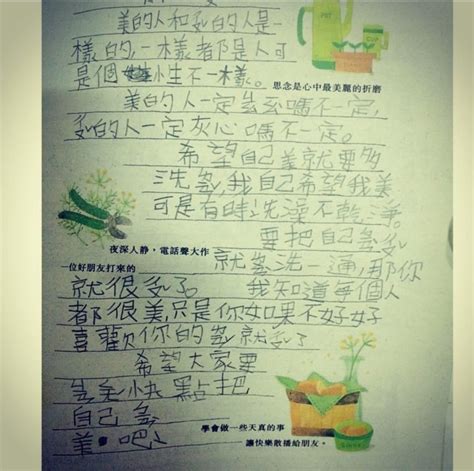 美的人和的人是一
樣的,一樣者都是人可
是個小生不一樣。
思念是心中最美麗的折磨
美的人一定嗎不一定,
的人一定灰心嗎不一定。
希望自己美就要多
洗,我自己希望我美
可是有時洗澡不乾淨。
要把自己
夜深人靜,電話聲大作
一位好朋友打來的
就洗一通,那你
就很了。 我知道每個人
都很美,只是你如果不好好
喜歡你的就了
希望大家要
快點把
自己
美吧!
學會做一些天真的事
讓快樂散播給朋友。